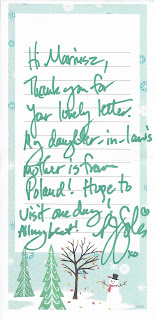 Hi Mariusz,
Thank you for
your lovely letter.
My daughter-in-law's
mother is from
Poland! Hope to
visit one day!
All my best!
xo